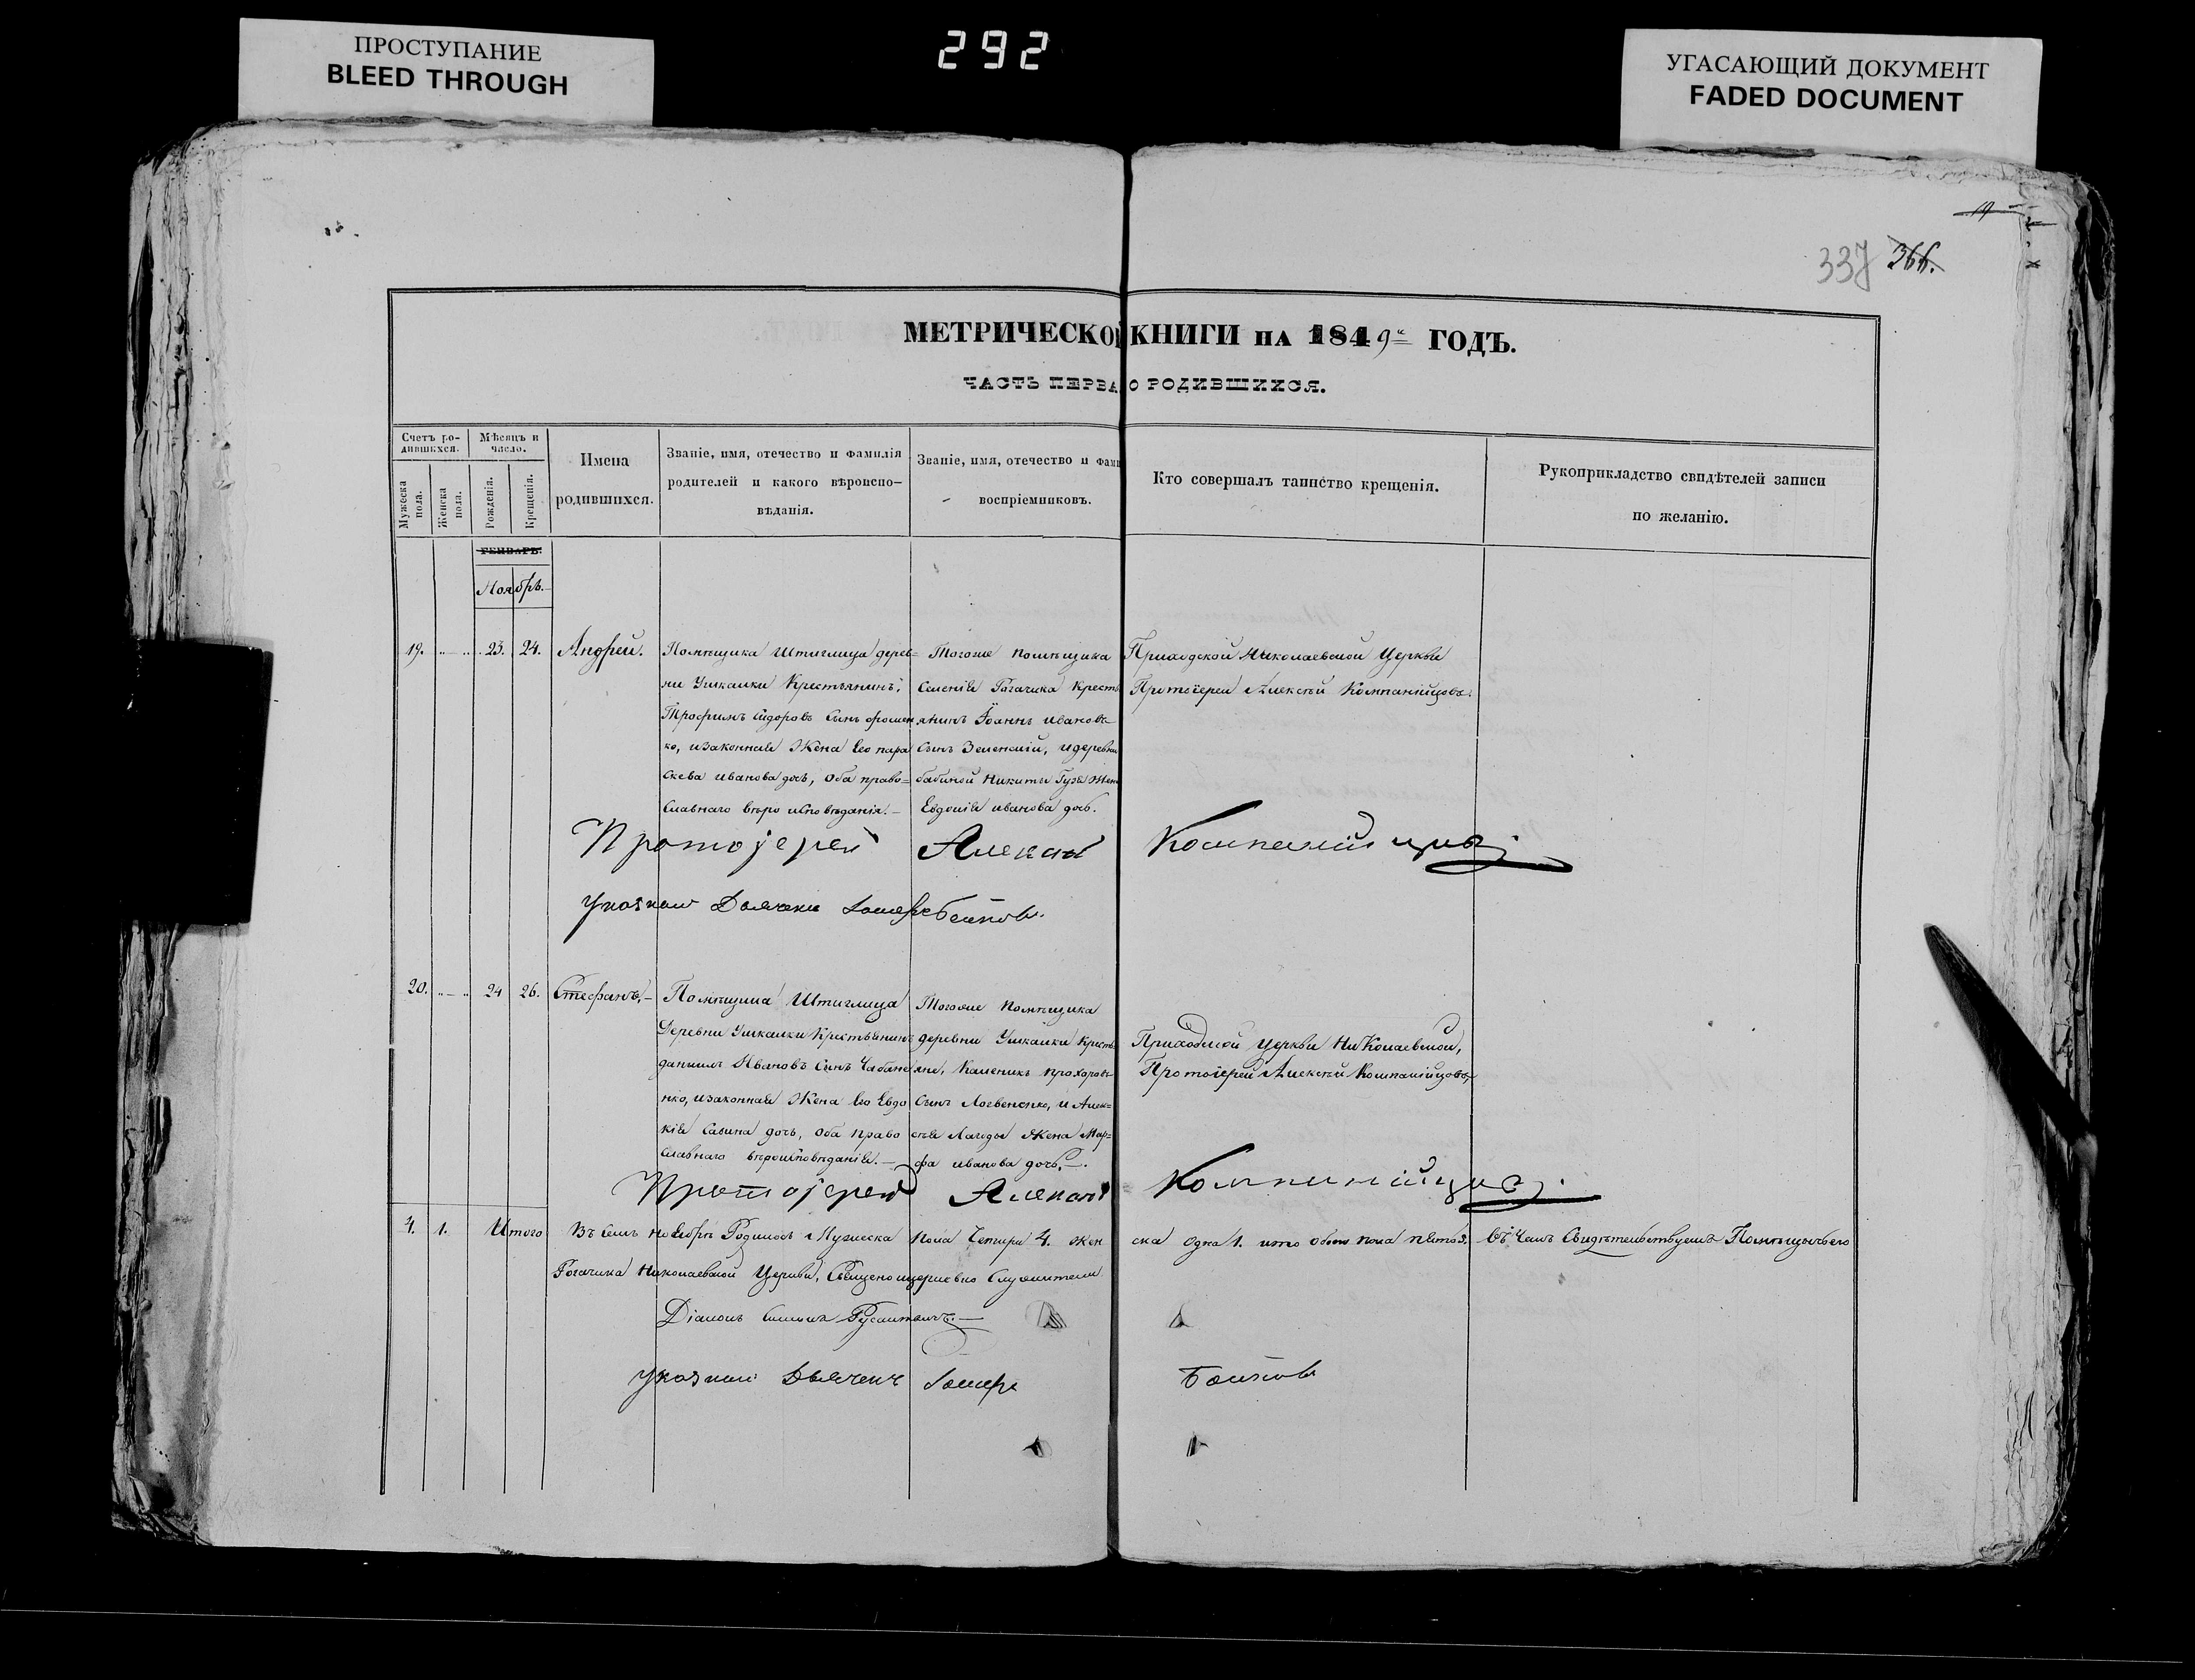 ПРОСТУПАНИЕ
BLEED THROUGH
292
УГАСАЮЩИЙ ДОКУМЕНТ
FADED DOCUMENT
337 366.
МЕТРИЧЕСКОЙ КНИГИ НА 1849й ГОДЪ.
ЧАСТЬ ПЕРВА О РОДИВШИХСЯ.
Счетъ ро-
дившихся.
Мужеска пола.
Женска пола.
Мѣсяцъ и
число.
Рожденія.
Крещенія.
Имена
родившихся.
Званіе, имя, отечество и фамилія
родителей и какого вѣроиспо-
вѣданія.
Званіе, имя, отечество и фами
воспріемниковъ.
Кто совершалъ таинство крещенія.
Рукоприкладство свидѣтелей записи
по желанію.
ГЕНВАРЬ.
Ноябрь.
19. 23. 24. Андрей.
Помѣщика Штиглица дерев=
ни Ушкалки Крестьянинъ,
Трофимъ Сидоровъ Сынъ Фомен
ко, изаконная Жена Его пара
скева иванова дочь, оба право=
славнаго вѣро исповѣданія.—
Тогоже помѣщика
Селенія Рогачика Крестъ
янинъ Іоаннъ иванова
Сынъ Зеленскій, идеревни
бабиной Никиты Гузя Жен
Евдокія иванова дочь.
Приходской Николаевской Церкви
Протоіерей Алексѣй Компанійцовъ.
Протоіерей Алексѣй Компанійцовъ
Указной Дьячекъ Іосифъ Бойковъ.
20. 24 26. Стефанъ.—
Помѣщика Штиглица
Деревни Ушкалки Крестьянинъ
даниилъ Ивановъ Сынъ Чабане
нко, изаконная Жена Его Евдо
кія Савина дочь, оба право
славнаго вѣроисповѣданія.—
Тогоже Помѣщика
деревни Ушкалки Крестья
яне, Каленикъ прохоровъ
Сынъ Логвененко, и Алек=
сѣя Лагоды Жена Мар=
фа иванова дочь.—
Приходской Церкви Николаевской,
Протоіерей Алексѣй Компанійцовъ
Протоіерей Алексѣй Компанійцовъ.
4. 1. Итого Въ семъ ноябрѣ Родилось Мужеска пола Четыри 4. жен ска Одна 1. итого обоего пола пять 5. въ чемъ Свидѣтельствуемъ Помѣщичьего
Рогачика Николаевской Церкви, Священоицерковно Служители
Діаконъ Симеонъ
Указной Дьячекъ Іосифъ Бойковъ